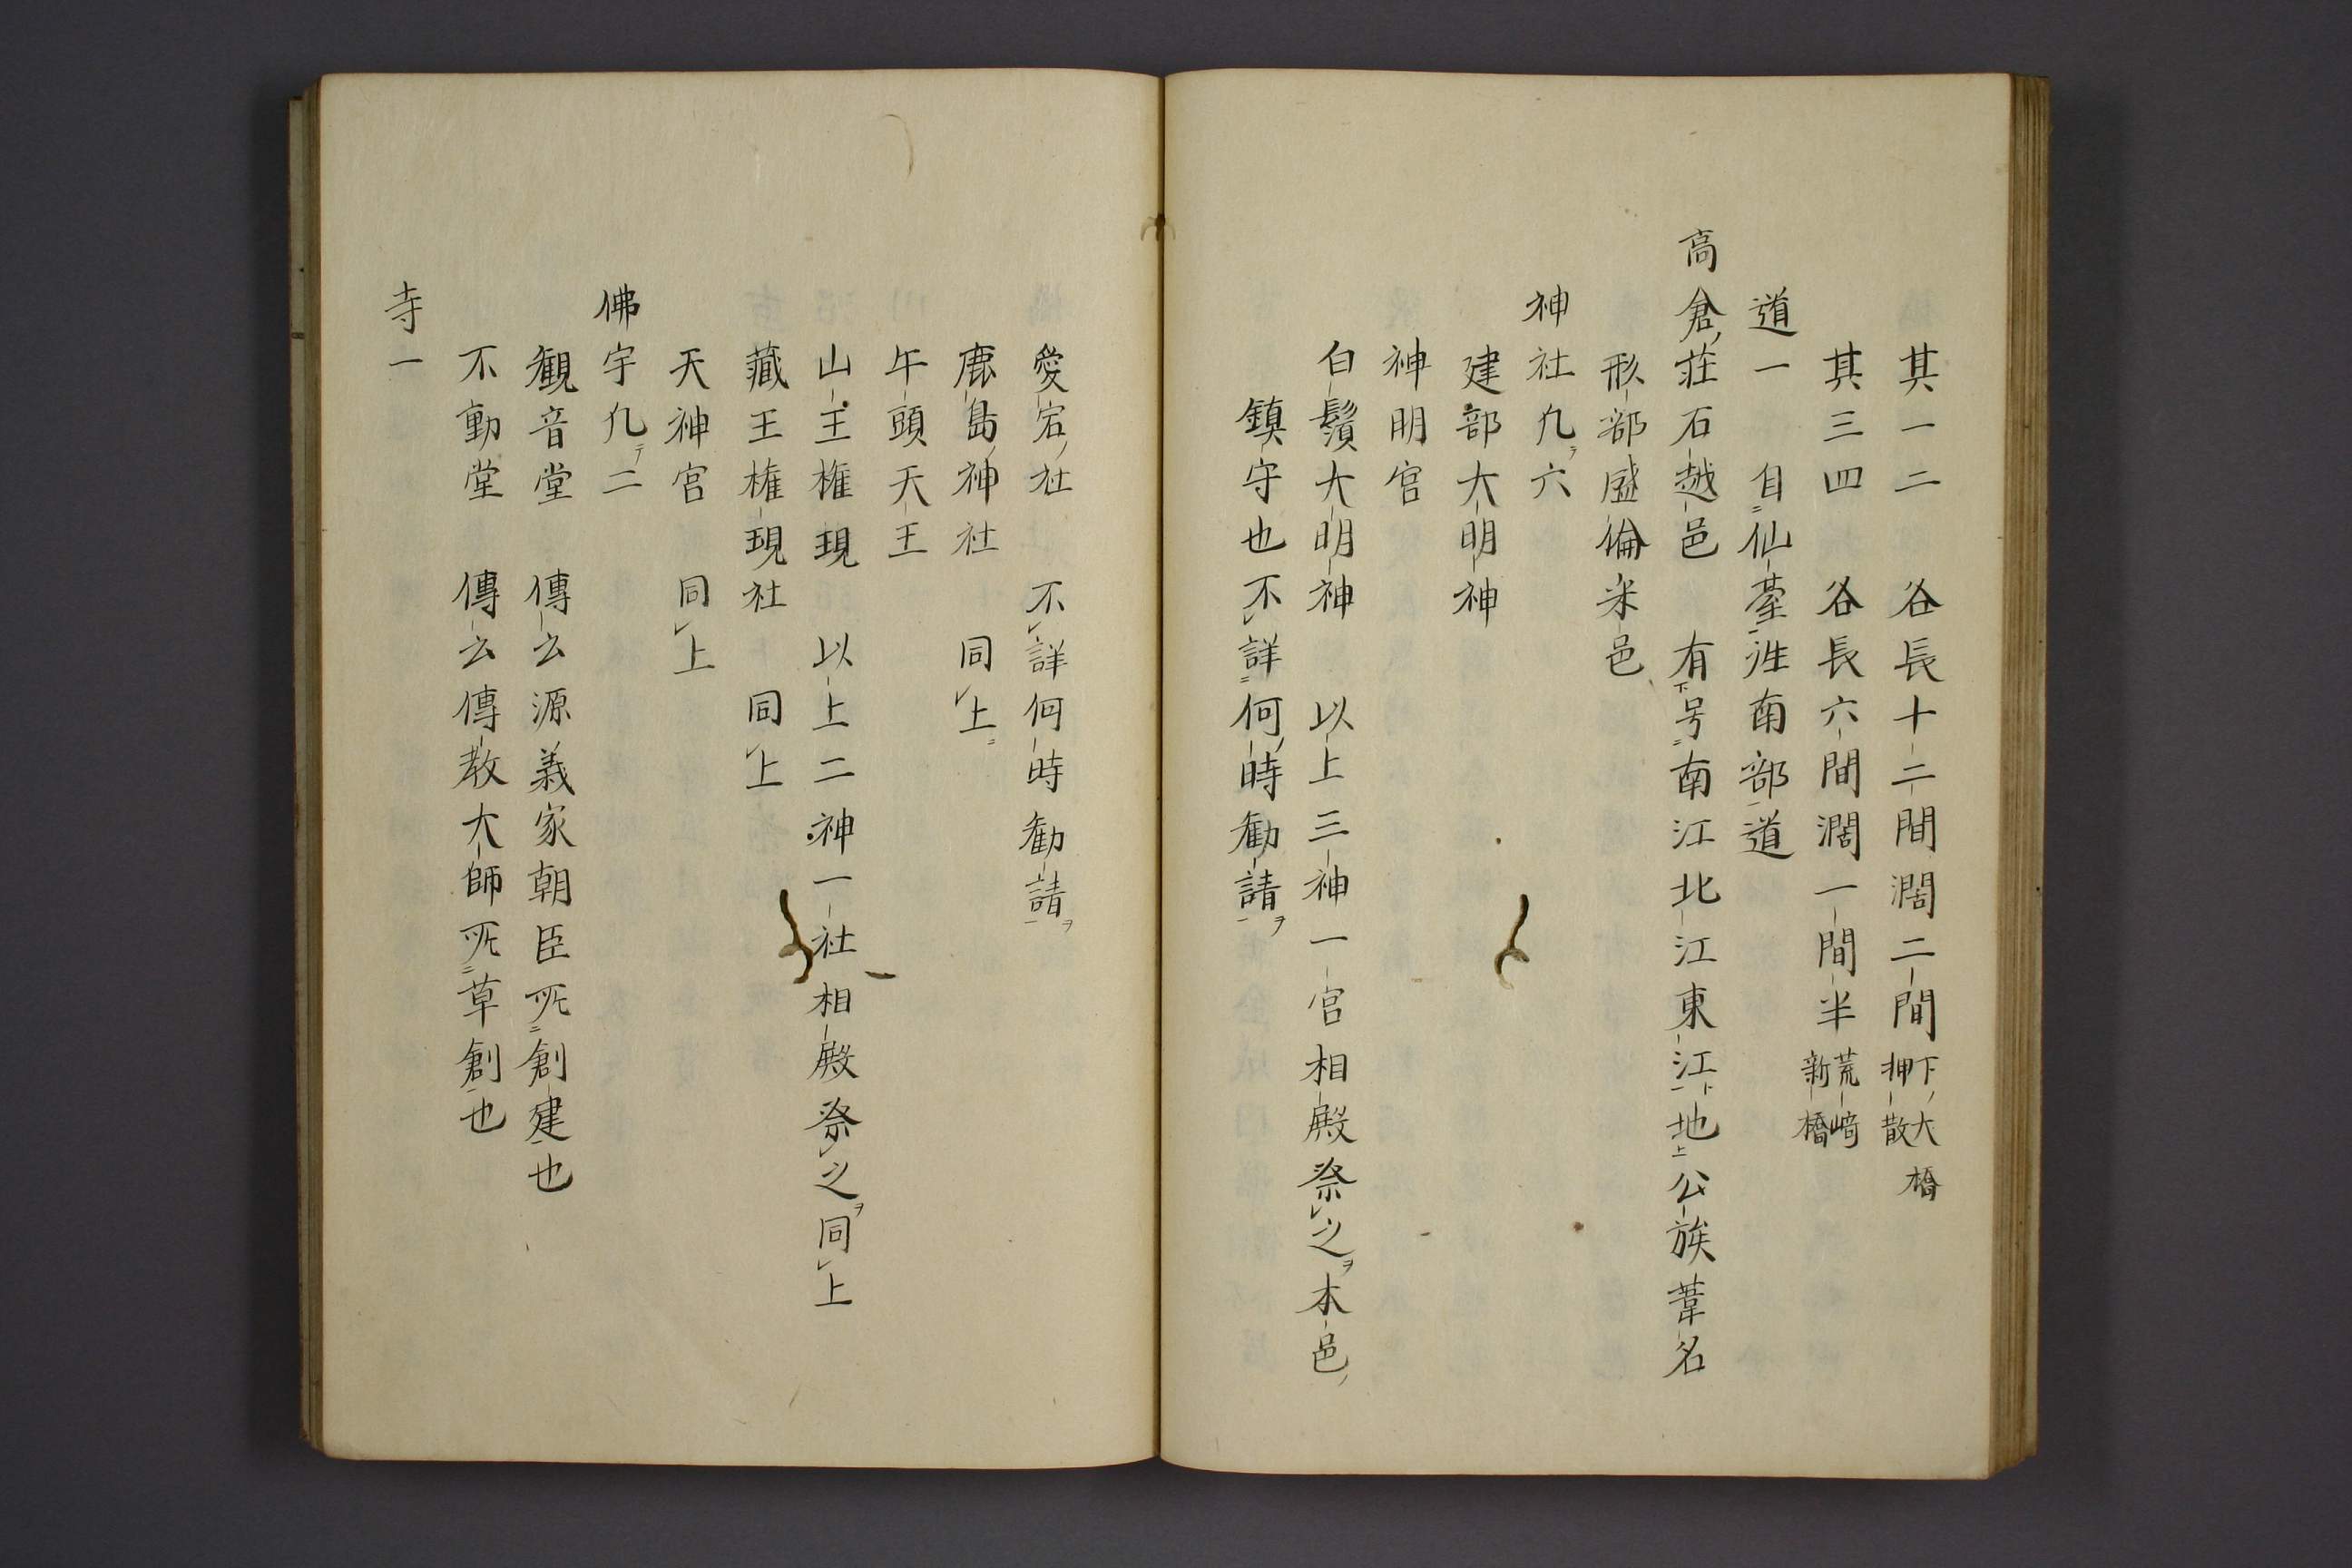 其一二　各長十二間濶二間下大橋押散
其三四　各長六間濶一間半荒﨑新橋
道一　自仙臺往南部道
高倉莊石越邑　有号南江北江東江地公族葦名
形部盛倫米邑
神社凢六
建部大明神
神明宮
白鬚大明神　以上三神一宮相殿祭之本邑
鎮守也不詳何時勧請
愛宕社　不詳何時勧請
鹿島神社　同上
午頭天王
山王権現　以上二神一社相殿祭之同上
藏王権現社　同上
天神宮　同上
佛宇凢二
観音堂　傳云源義家朝臣所創建也
不動堂　傳云傳教大師所草創也
寺一